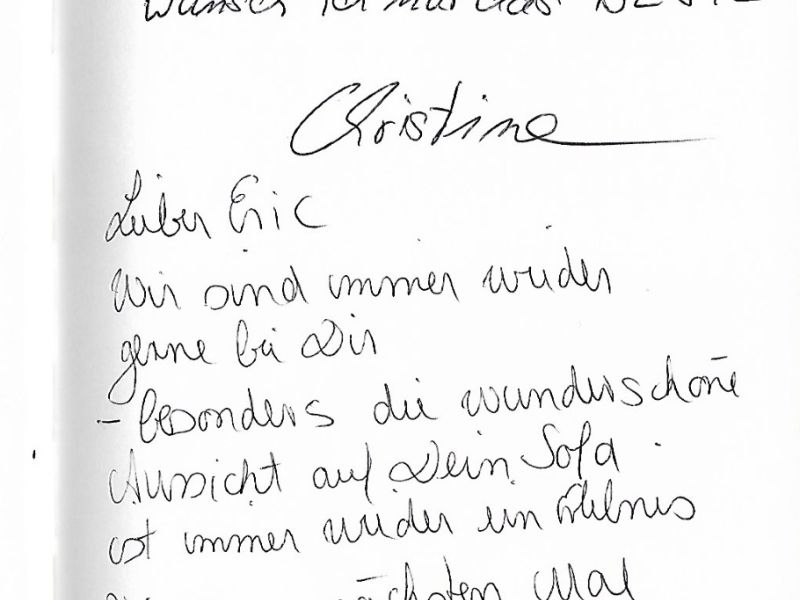 Wünsch ich mir das BESTE
Christine
Lieber Eric
Wir sind immer wieder
gerne bei Dir
- besonders die wunderschöne
Aussicht auf Dein Sofa
ist immer wieder ein Erlebnis
nächsten Mal